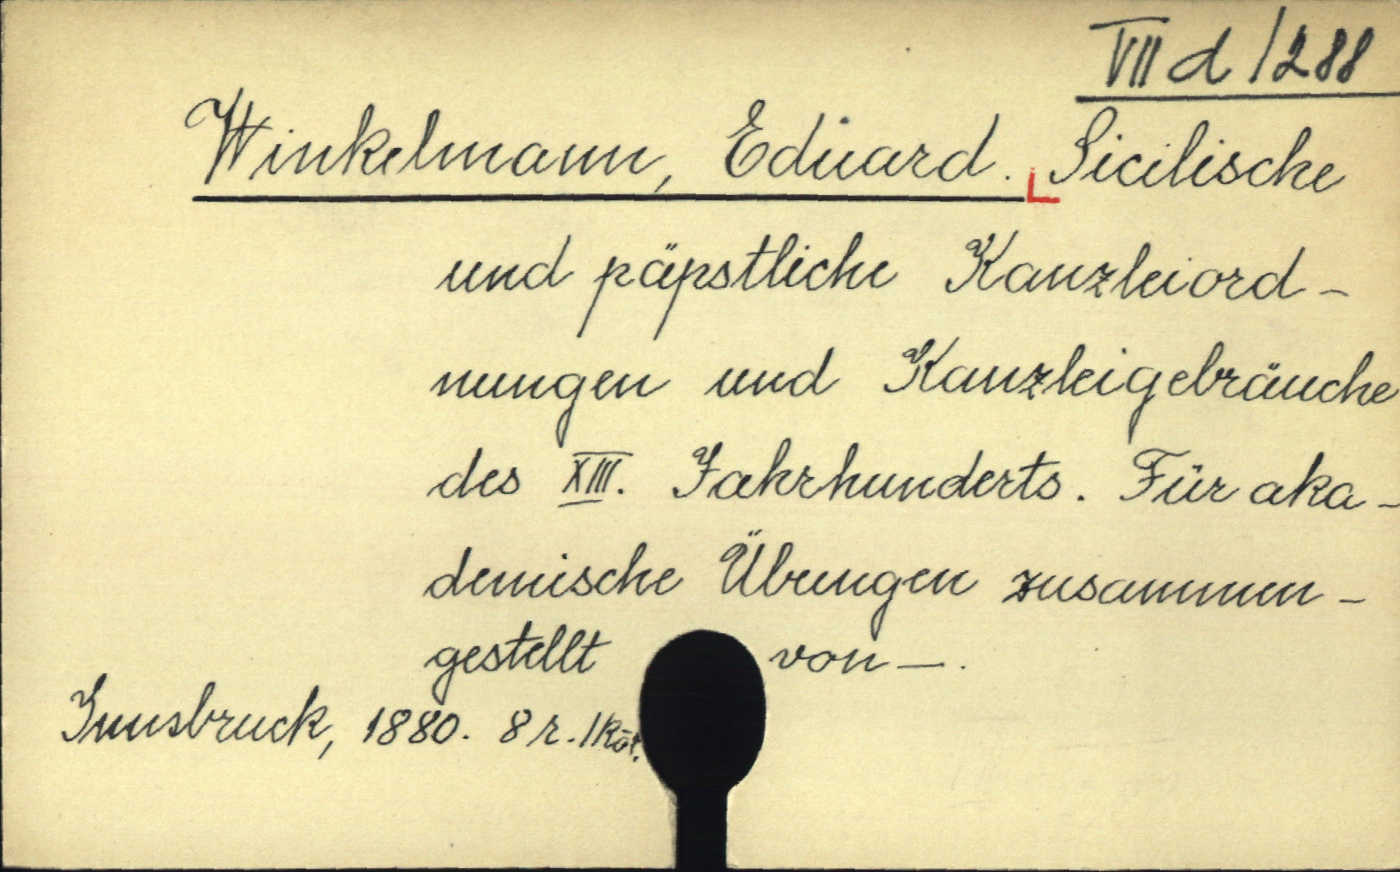 VII d / 288
Winkelmann, Eduard. Sicilische
und päpstliche Kanzleiord-
nungen und Kanzleigebräuche
des XIII. Jahrhunderts. Für aka-
demische Übungen zusammen-
gestellt von —.
Innsbruck, 1880. 8 r. 1 köt.